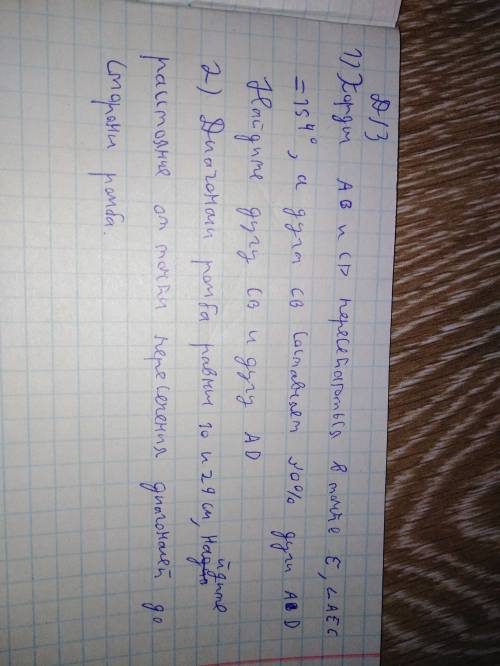 Д/З
1) Хорды АВ и CD пересекаются в точке Е, ∠АЕС
=154°, а дуга СВ составляет 10% дуги АD
Найдите дугу СВ и дугу AD
2) Диагонали ромба равны 10 и 24 см, найдите
расстояние от точки пересечения диагоналей до
стороны ромба.